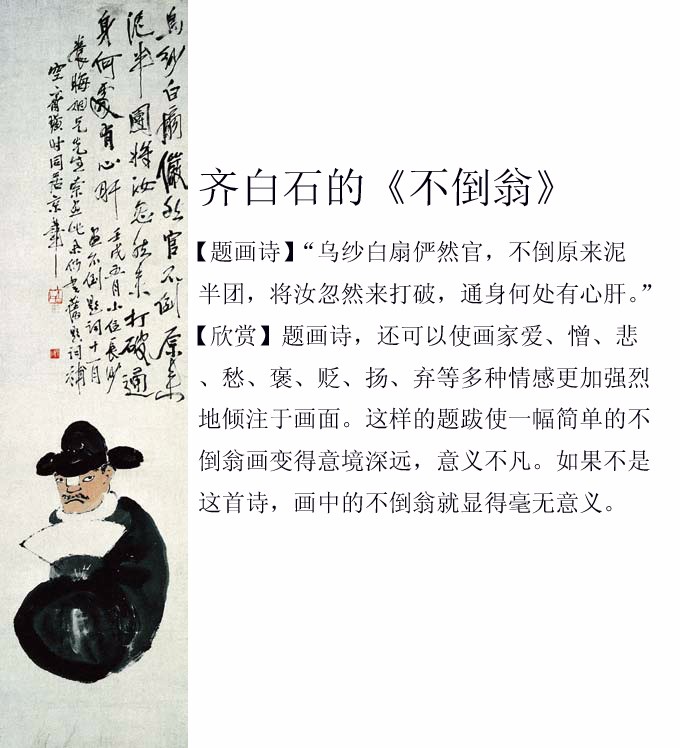 烏紗白扇儼然官不倒原來
泥半團將汝忽然來打破通
身何處有心肝 壬戌五月小住長沙
不倒題詞十一月
先生索畫此余仍書舊題詞補
空齊璜時同客京華
齐白石的《不倒翁》
【题画诗】“乌纱白扇俨然官，不倒原来泥
半团，将汝忽然来打破，通身何处有心肝。”
【欣赏】题画诗，还可以使画家爱、憎、悲
、愁、褒、贬、扬、弃等多种情感更加强烈
地倾注于画面。这样的题跋使一幅简单的不
倒翁画变得意境深远，意义不凡。如果不是
这首诗，画中的不倒翁就显得毫无意义。